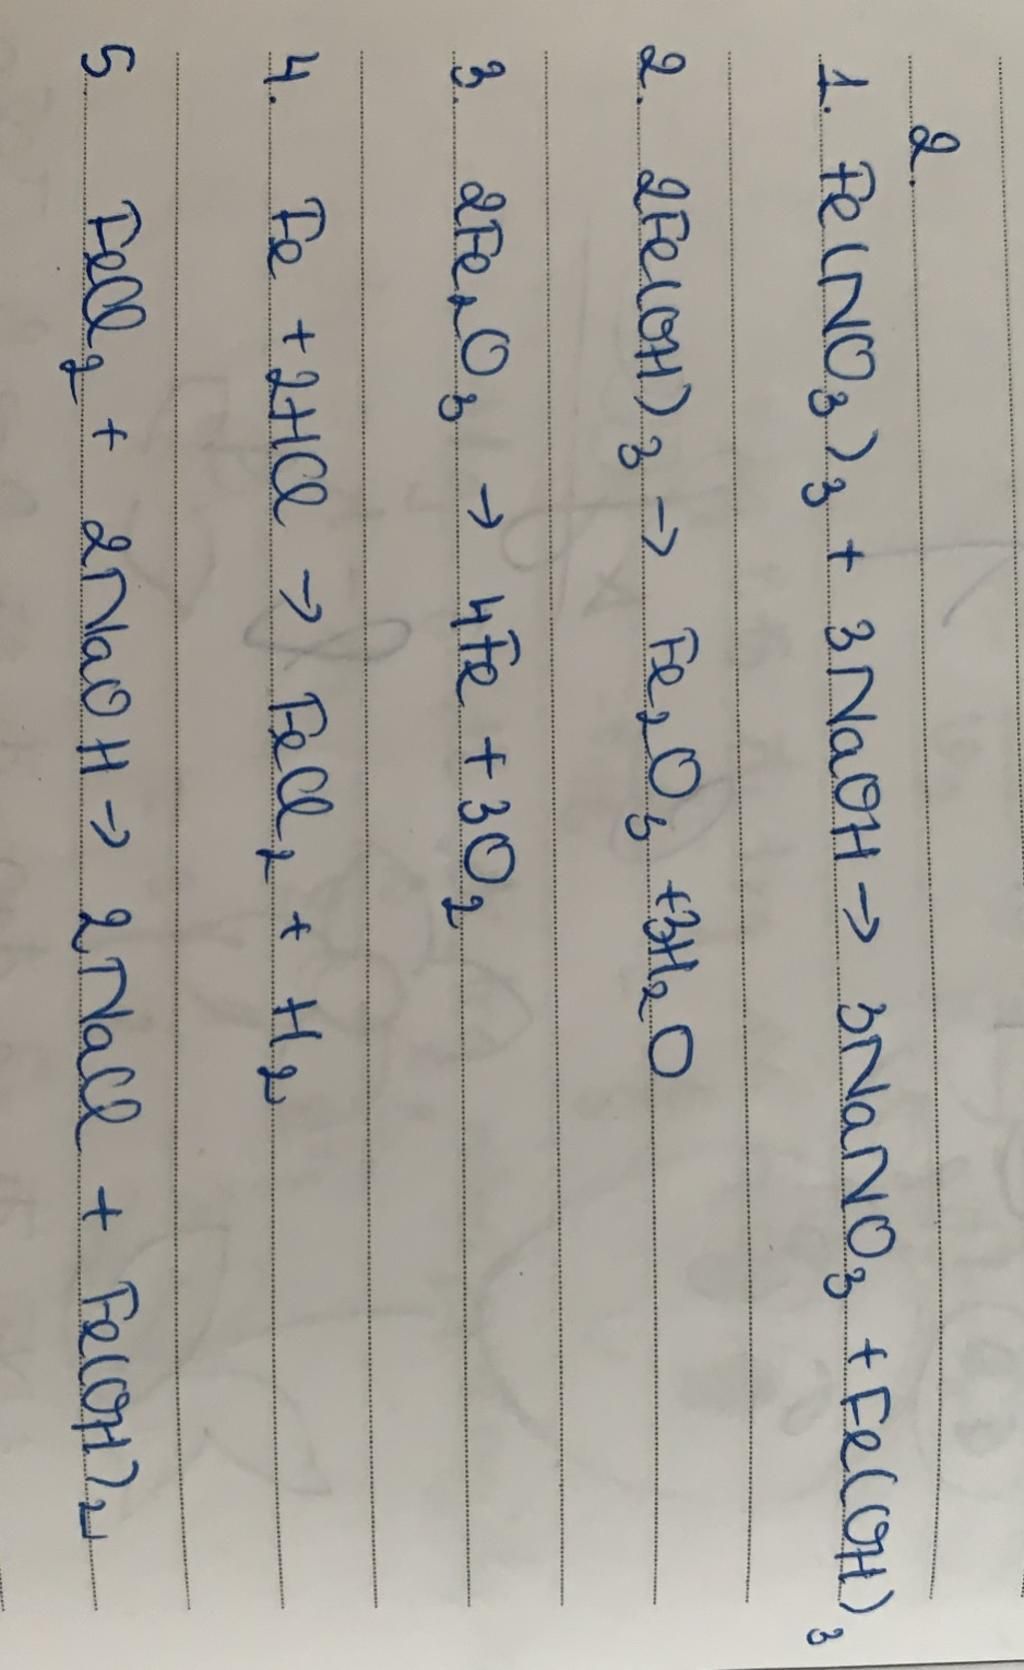 2.
1. Fe(NO₃)₃ + 3NaOH → 3NaNO₃ + Fe(OH)₃
2. 2Fe(OH)₃ → Fe₂O₃ + 3H₂O
3. 2Fe₂O₃ → 4Fe + 3O₂
4. Fe + 2HCl → FeCl₂ + H₂
5 FeCl₂ + 2NaOH → 2NaCl + Fe(OH)₂